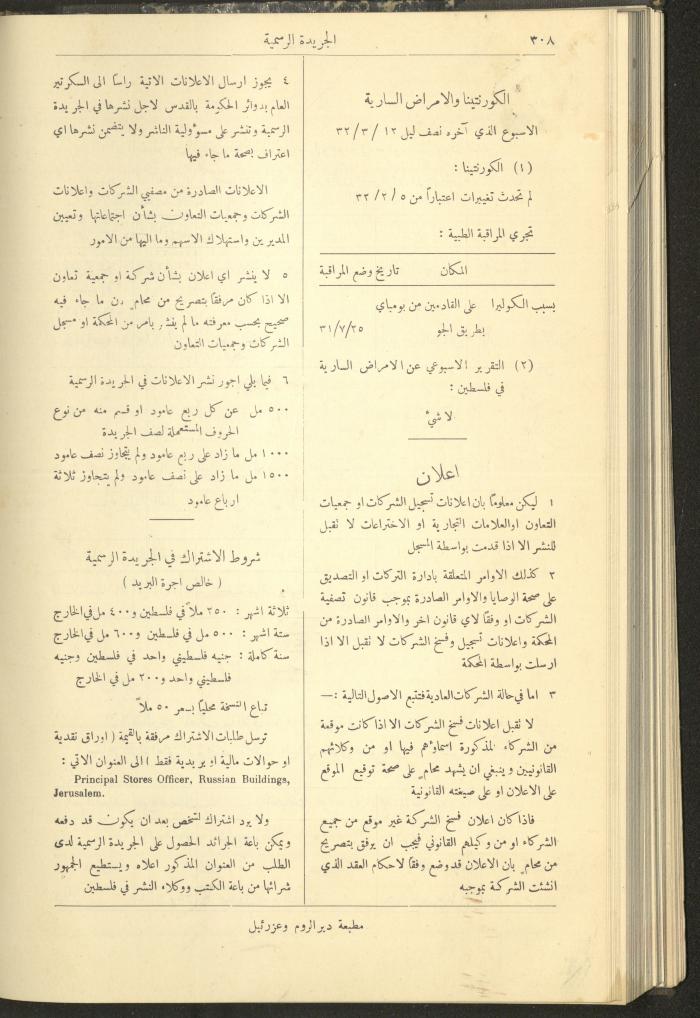 ٣٠٨
الجريدة الرسمية
الكورنتينا والامراض السارية
الاسبوع الذي آخره نصف ليل ١٢ / ٣ / ٣٢
(١) الكورنتينا :
لم تحدث تغييرات اعتباراً من ٥ / ٢ / ٣٢
تجري المراقبة الطبية :
المكان تاريخ وضع المراقبة
بسبب الكوليرا على القادمين من بومباي
بطريق الجو ٣١/٧/٢٥
(٢) التقرير الاسبوعي عن الامراض السارية
في فلسطين :
لا شيء
اعلان
١ ليكن معلوماً بان اعلانات تسجيل الشركات او جمعيات
التعاون او العلامات التجارية او الاختراعات لا تقبل
للنشر الا اذا قدمت بواسطة المسجل
٢ كذلك الاوامر المتعلقة بادارة التركات او التصديق
على صحة الوصايا والاوامر الصادرة بموجب قانون تصفية
الشركات او وفقاً لاي قانون اخر والاوامر الصادرة من
المحكمة واعلانات تسجيل وفسخ الشركات لا تقبل الا اذا
ارسلت بواسطة المحكمة
٣ اما في حالة الشركات العادية فتتبع الاصول التالية :—
لا تقبل اعلانات فسخ الشركات الا اذا كانت موقعة
من الشركاء المذكورة اسماؤهم فيها او من وكلائهم
القانونيين وينبغي ان يشهد محام على صحة توقيع الموقع
على الاعلان او على صيغته القانونية
فاذا كان اعلان فسخ الشركة غير موقع من جميع
الشركاء او من وكيلهم القانوني فيجب ان يرفق بتصريح
من محام بان الاعلان قد وضع وفقاً لاحكام العقد الذي
انشئت الشركة بموجبه
٤ يجوز ارسال الاعلانات الاتية راساً الى السكرتير
العام بدوائر الحكومة بالقدس لاجل نشرها في الجريدة
الرسمية وتنشر على مسؤولية الناشر ولا يتضمن نشرها اي
اعتراف بصحة ما جاء فيها
الاعلانات الصادرة من مصفيي الشركات واعلانات
الشركات وجمعيات التعاون بشأن اجتماعاتها وتعيين
المديرين واستهلاك الاسهم وما اليها من الامور
٥ لا ينشر اي اعلان بشأن شركة او جمعية تعاون
الا اذا كان مرفقاً بتصريح من محام ان ما جاء فيه
صحيح بحسب معرفته ما لم ينشر بامر من المحكمة او مسجل
الشركات وجمعيات التعاون
٦ فيما يلي اجور نشر الاعلانات في الجريدة الرسمية
٥٠٠ مل عن كل ربع عامود او قسم منه من نوع
الحروف المستعملة لصف الجريدة
١٠٠٠ مل ما زاد على ربع عامود ولم يتجاوز نصف عامود
١٥٠٠ مل ما زاد على نصف عامود ولم يتجاوز ثلاثة
ارباع عامود
شروط الاشتراك في الجريدة الرسمية
( خالص اجرة البريد )
ثلاثة اشهر : ٢٥٠ ملاً في فلسطين و ٤٠٠ مل في الخارج
ستة اشهر : ٥٠٠ مل في فلسطين و ٦٠٠ مل في الخارج
سنة كاملة : جنيه فلسطيني واحد في فلسطين وجنيه
فلسطيني واحد و ٢٠٠ مل في الخارج
تباع النسخة محلياً بسعر ٥٠ ملاً
ترسل طلبات الاشتراك مرفقة بالقيمة ( اوراق نقدية
او حوالات مالية او بريدية فقط ) الى العنوان الاتي :
Principal Stores Officer, Russian Buildings,
Jerusalem.
ولا يرد اشتراك لشخص بعد ان يكون قد دفعه
ويمكن باعة الجرائد الحصول على الجريدة الرسمية لدى
الطلب من العنوان المذكور اعلاه ويستطيع الجمهور
شرائها من باعة الكتب ووكلاء النشر في فلسطين
مطبعة دير الروم وعزرئيل